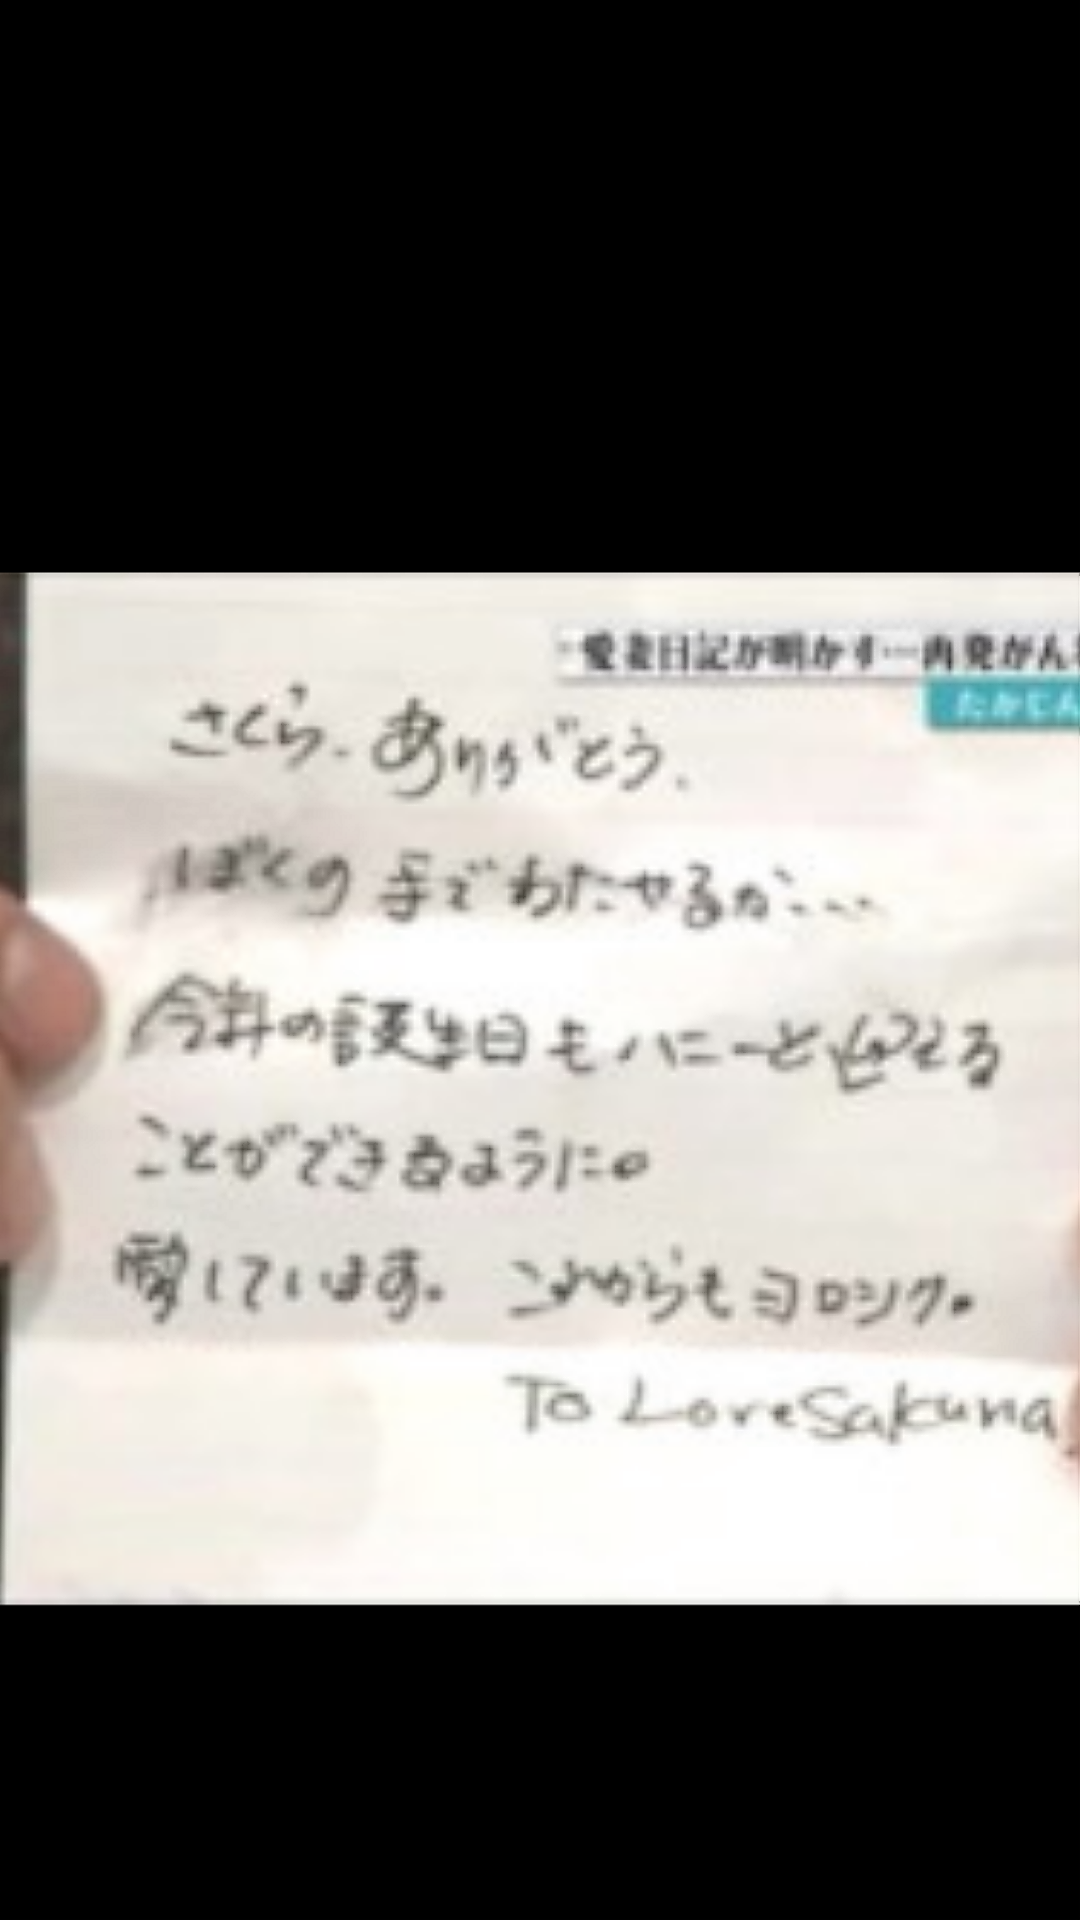 愛妻日記が明かす…再発がん
たかじん
さくら、ありがとう、
ぼくの手でわたせるか…
今年の誕生日もハニーと
ことができるように。
愛しています。これからもヨロシク。
To Love Sakura